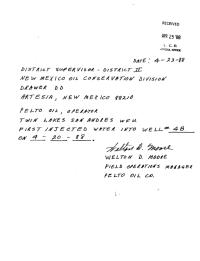 RECEIVED
APR 25 '88
O. C. D.
ARTESIA, OFFICE
DATE: 4-23-88
DISTRICT SUPERVISOR - DISTRICT II
NEW MEXICO OIL CONSERVATION DIVISION
DRAWER DD
ARTESIA, NEW MEXICO 88210
PELTO OIL, OPERATOR
TWIN LAKES SAN ANDRES UNIT
FIRST INJECTED WATER INTO WELL # 48
ON 4-20-88.
Welton D. Moore
WELTON D. MOORE
FIELD OPERATIONS MANAGER
PELTO OIL CO.